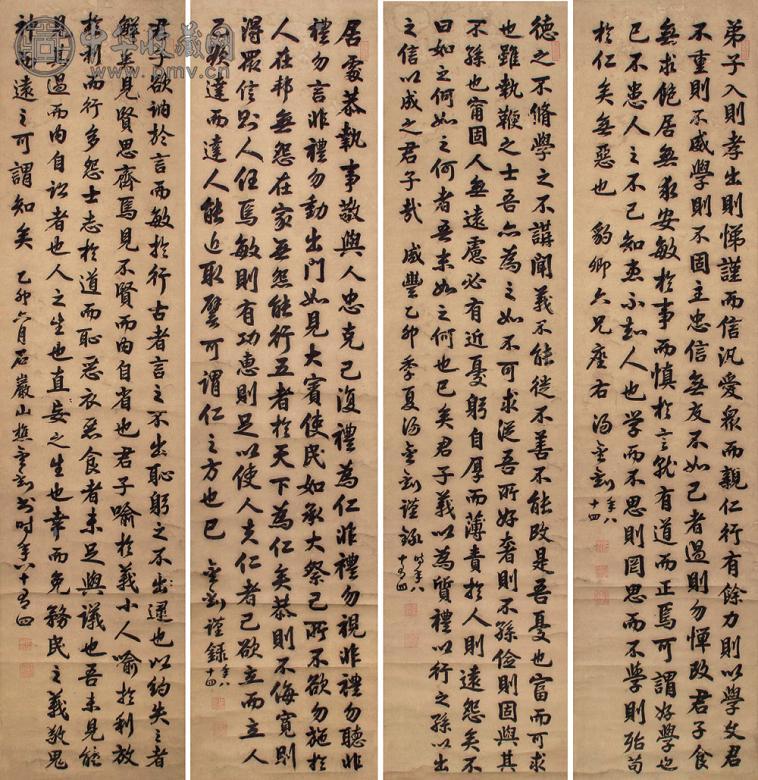 弟子入則孝出則悌謹而信汎愛眾而親仁行有餘力則以學文君
不重則不威學則不固主忠信無友不如己者過則勿憚改君子食
無求飽居無求安敏於事而慎於言就有道而正焉可謂好學也
已不患人之不己知患不知人也學而不思則罔思而不學則殆苟
於仁矣無惡也 豹卿六兄座右 湯金釗 年八十四
德之不脩學之不講聞義不能徙不善不能改是吾憂也富而可求
也雖執鞭之士吾亦為之如不可求從吾所好奢則不孫儉則固與其
不孫也甯固人無遠慮必有近憂躬自厚而薄責於人則遠怨矣不
曰如之何如之何者吾末如之何也已矣君子義以為質禮以行之孫以出
之信以成之君子哉 咸豐乙卯季夏湯金釗謹錄 時年八十有四
居處恭執事敬與人忠克己復禮為仁非禮勿視非禮勿聽非
禮勿言非禮勿動出門如見大賓使民如承大祭己所不欲勿施於
人在邦無怨在家無怨能行五者於天下為仁矣恭則不侮寬則
得眾信則人任焉敏則有功惠則足以使人夫仁者己欲立而立人
己欲達而達人能近取譬可謂仁之方也已 金釗謹錄 年八十四
君子欲訥於言而敏於行古者言之不出恥躬之不逮也以約失之者
鮮矣見賢思齊焉見不賢而內自省也君子喻於義小人喻於利放
於利而行多怨士志於道而恥惡衣惡食者未足與議也吾未見能
見其過而內自訟者也人之生也直妄之生也幸而免務民之義敬鬼
神而遠之可謂知矣 乙卯六月石巖山樵金釗書時年八十有四
中华收藏网
www.pmv.cn